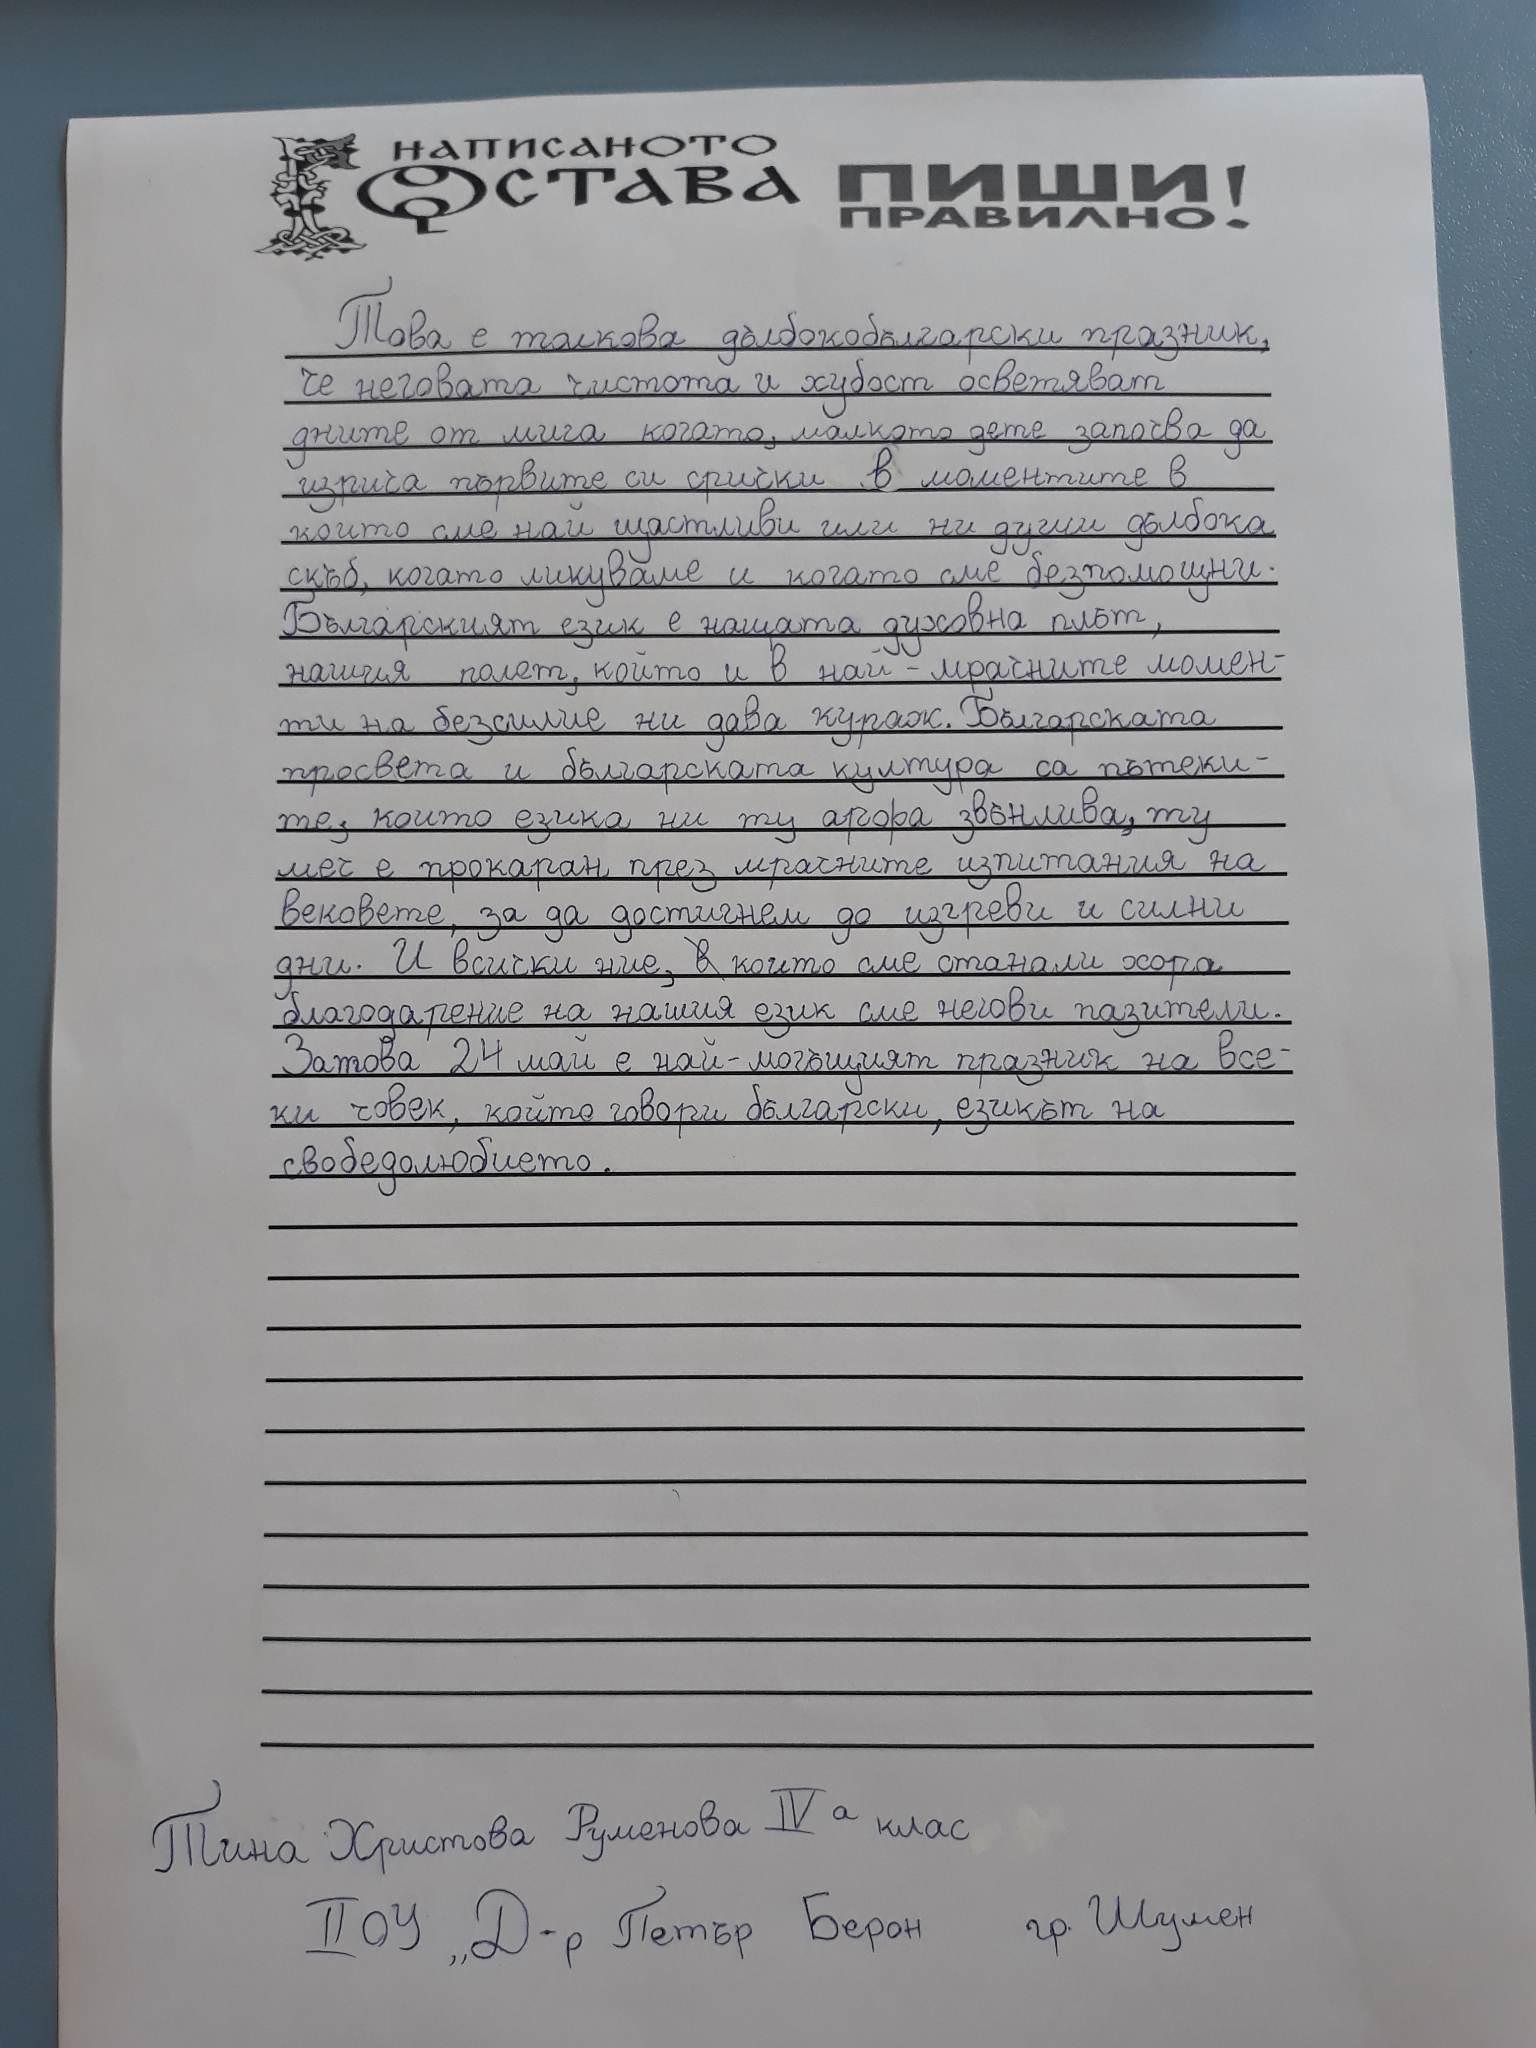 НАПИСАНОТО
ОСТАВА
ПИШИ
ПРАВИЛНО!
Това е толкова дълбокобългарски празник,
че неговата чистота и хубост осветяват
дните от мига когато, малкото дете започва да
изрича първите си срички в моментите в
които сме най щастливи или ни души дълбока
скъб, когато ликуваме и когато сме безпомощни.
Българският език е нащата духовна плът,
нашия полет, който и в най-мрачните момен-
ти на безсилие ни дава кураж. Българската
просвета и българската култура са пътеки-
те, които езика ни ту арфа звънлива, ту
меч е прокаран през мрачните изпитания на
вековете, за да достигнем до изгреви и силни
дни. И всички ние, които сме станали хора
благодарение на нашия език сме негови пазители.
Затова 24 май е най-могъщият празник на все-
ки човек, който говори български, езикът на
свободолюбието.
Тина Христова Руменова IV а клас
II ОУ „Д-р Петър Берон гр. Шумен